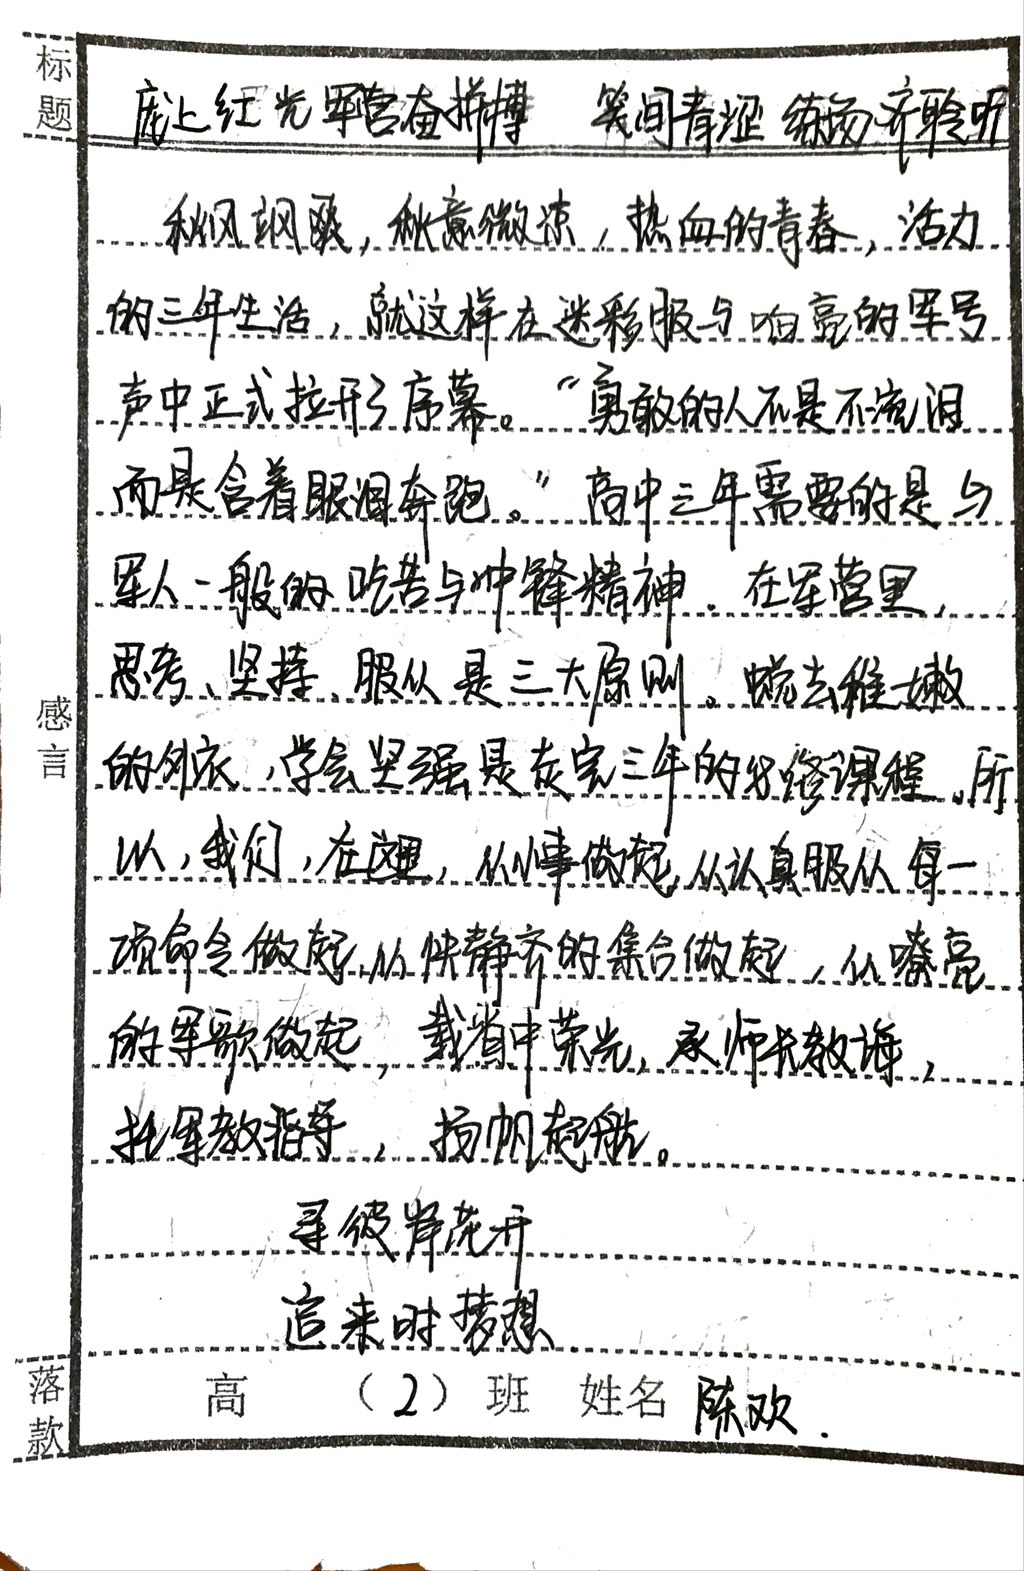 标题
庞上红光军营奋拼搏 笑间青涩练场齐聆听
秋风飒爽，秋意微凉，热血的青春，活力
的三年生活，就这样在迷彩服与响亮的军号
声中正式拉开了序幕。“勇敢的人不是不流泪
而是含着眼泪奔跑。”高中三年需要的是与
军人一般的吃苦与冲锋精神．在军营里，
思考、坚持、服从是三大原则。蜕去稚嫩
感言
的外衣，学会坚强是在完三年的必修课程。所
以，我们，在这里，从小事做起，从认真服从每一
项命令做起，从快静齐的集合做起，从嘹亮
的军歌做起，载省中荣光，承师长教诲，
托军教指导，扬帆起航。
寻彼岸花开
追来时梦想
落款
高 （2）班 姓名 陈欢．